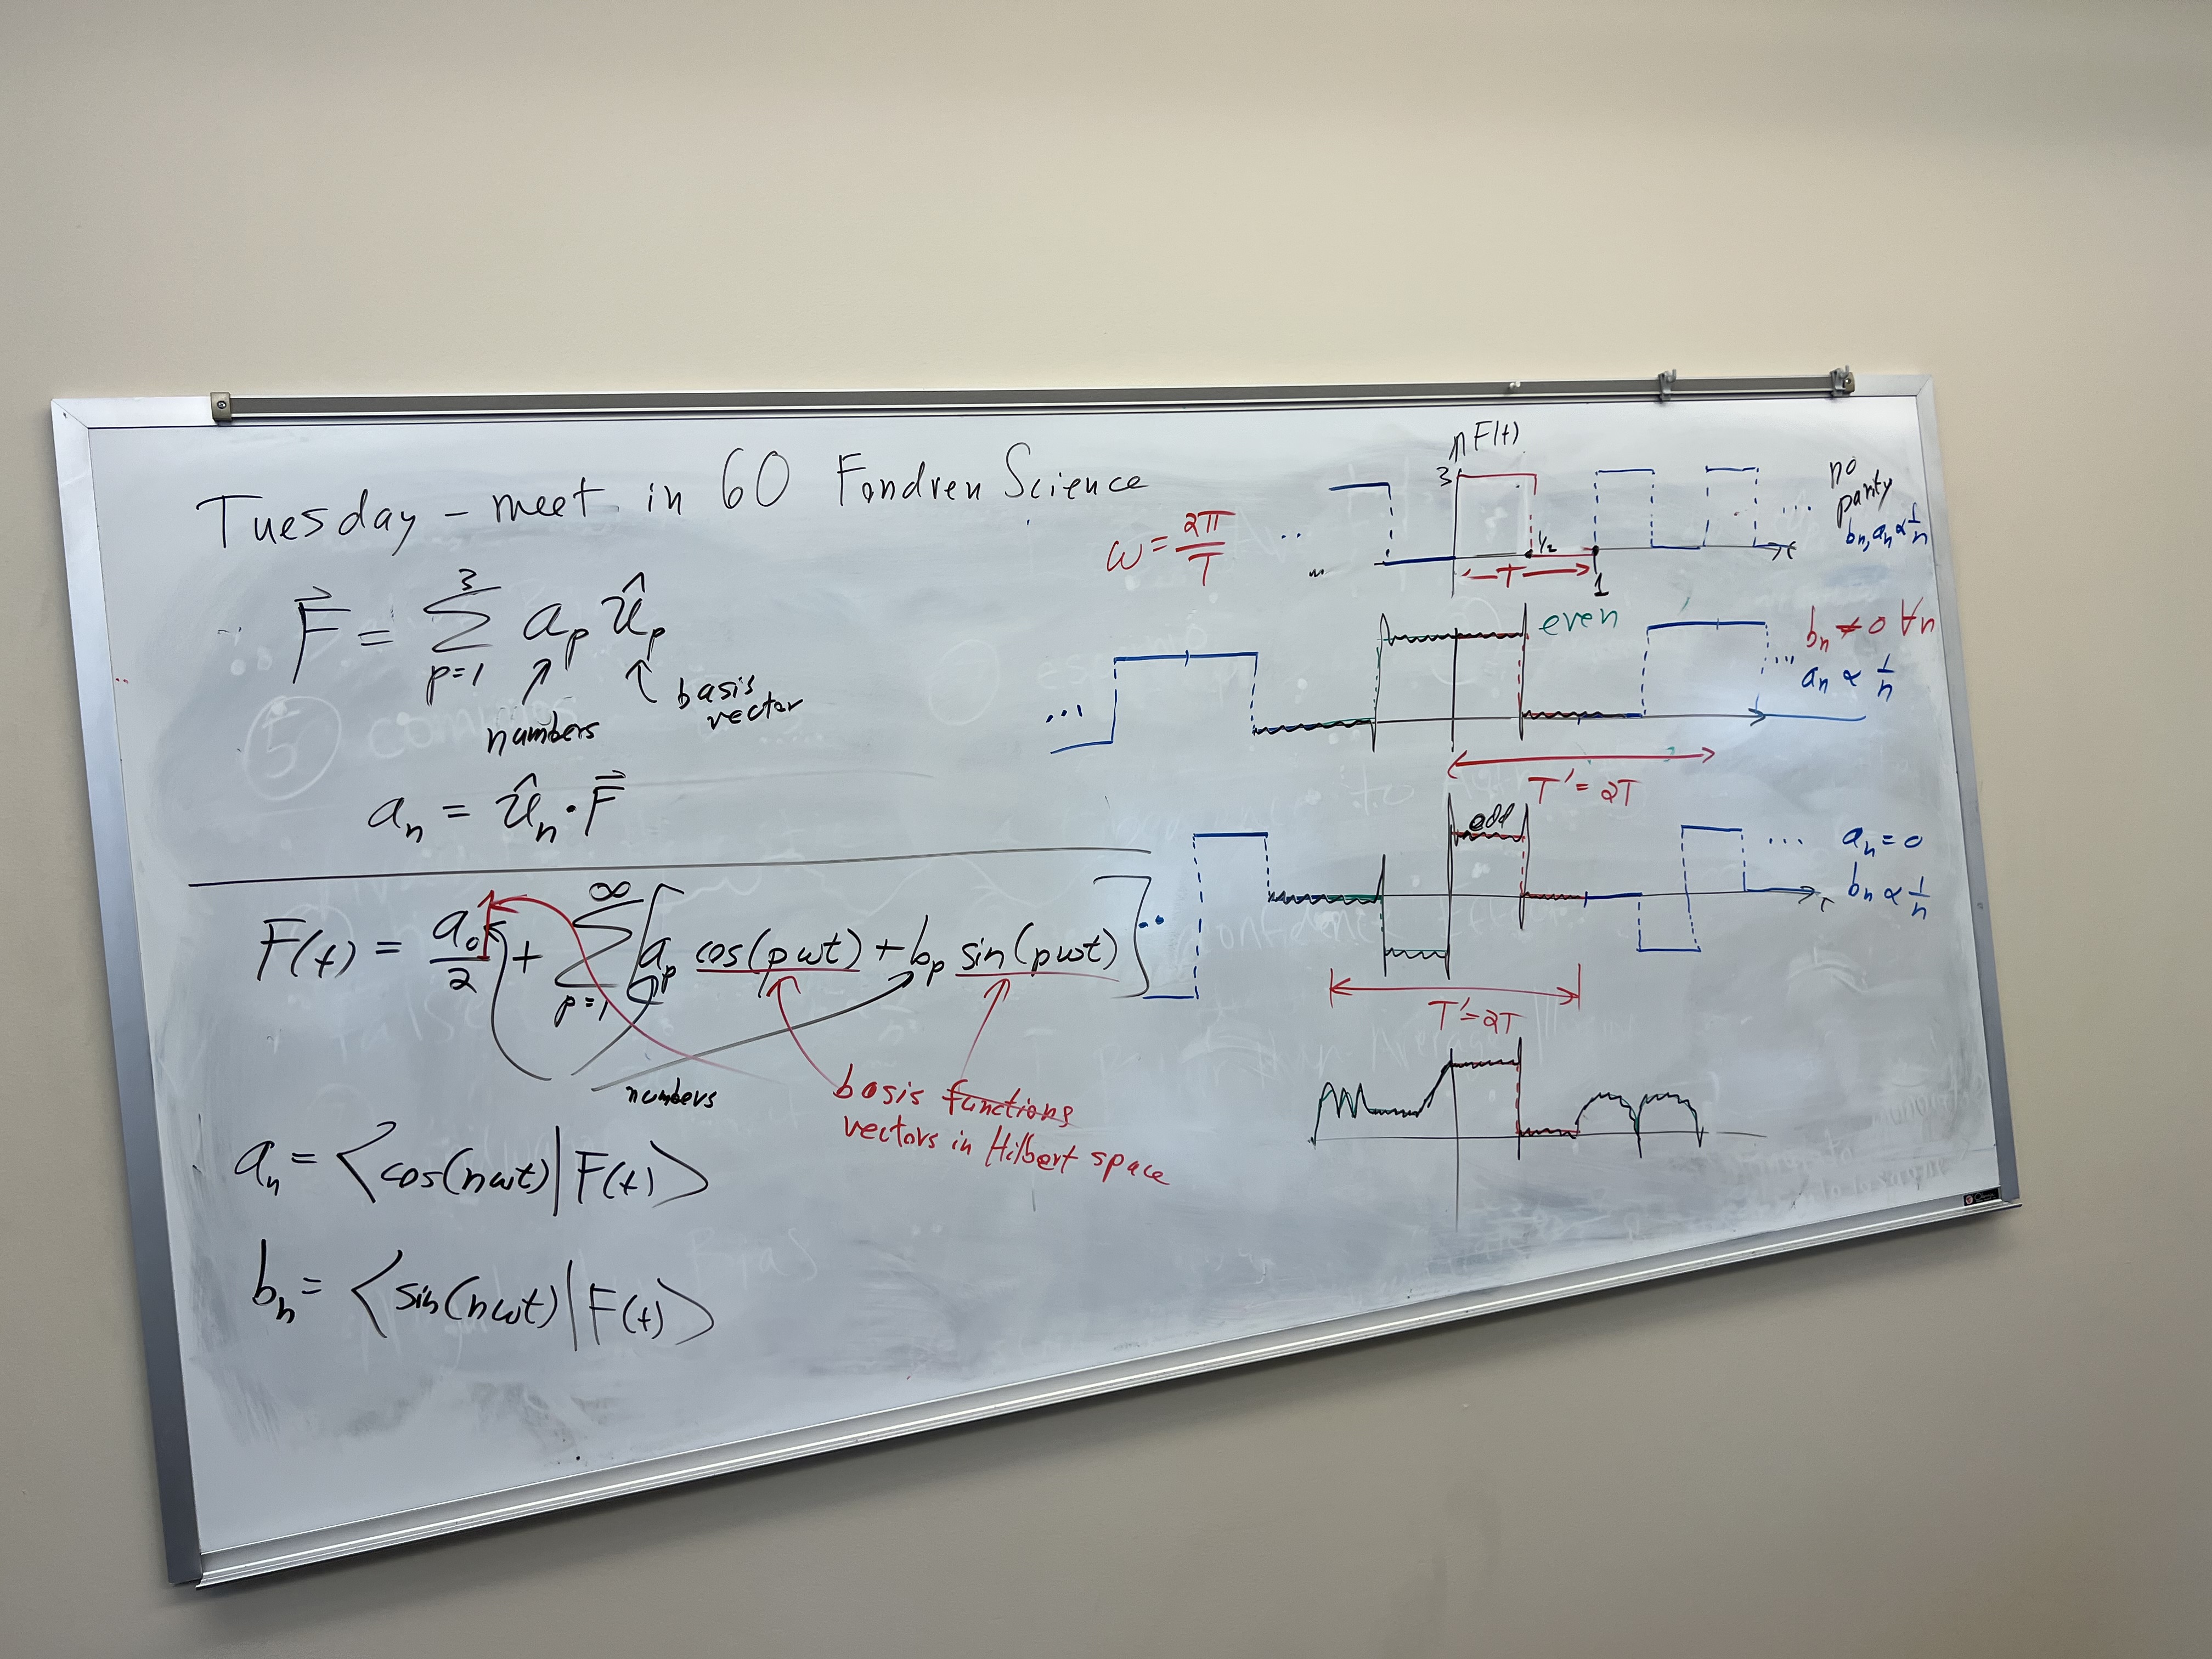 Tuesday - meet in 60 Fondren Science
F⃗ = Σ_{p=1}^{3} a_p û_p
numbers
basis
vector
a_n = û_n · F⃗
F(t) = a_0/2 + Σ_{p=1}^{∞} [a_p cos(pωt) + b_p sin(pωt)]
numbers
basis functions
vectors in Hilbert space
a_n = ⟨cos(nωt)|F(t)⟩
b_n = ⟨sin(nωt)|F(t)⟩
ω = 2π/T
...
F(t)
3
1/2
T
1
t
...
no
parity
b_n, a_n ∝ 1/n
...
even
b_n ≠ 0 ∀n
...
a_n ∝ 1/n
T' = 2T
odd
...
a_n = 0
b_n ∝ 1/n
t
T' = 2T
5